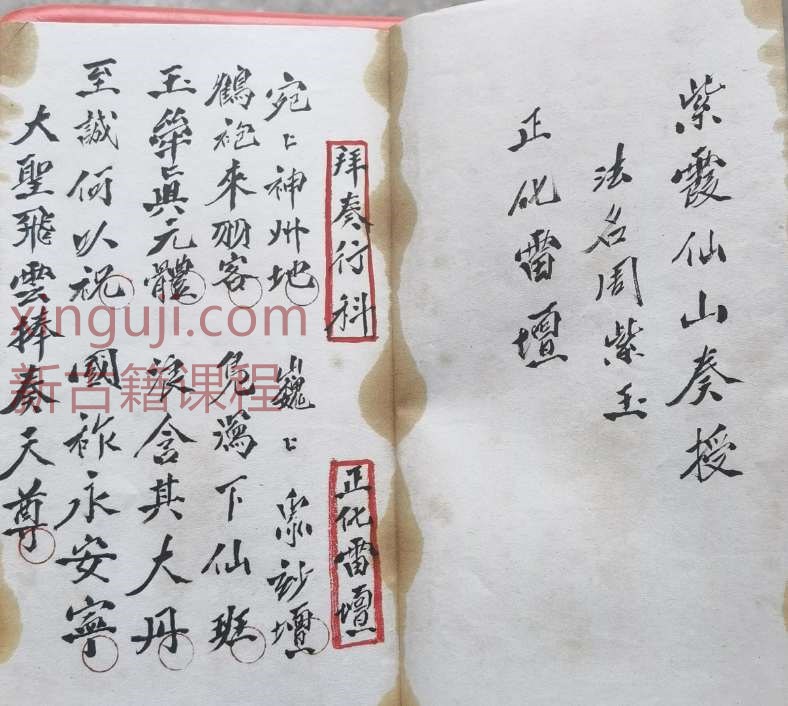 紫霞仙山奏授
法名周紫玉
正化雷壇
拜奏行科 正化雷壇
宛〻神州地 巍〻衆玅壇
鶴袍來羽客 鳧瀉下仙班
玉眞元體 浪含其大丹
至誠何以祝 國祚永安寧
大聖飛雲捧奏天尊
xinguji.com
新古籍课程